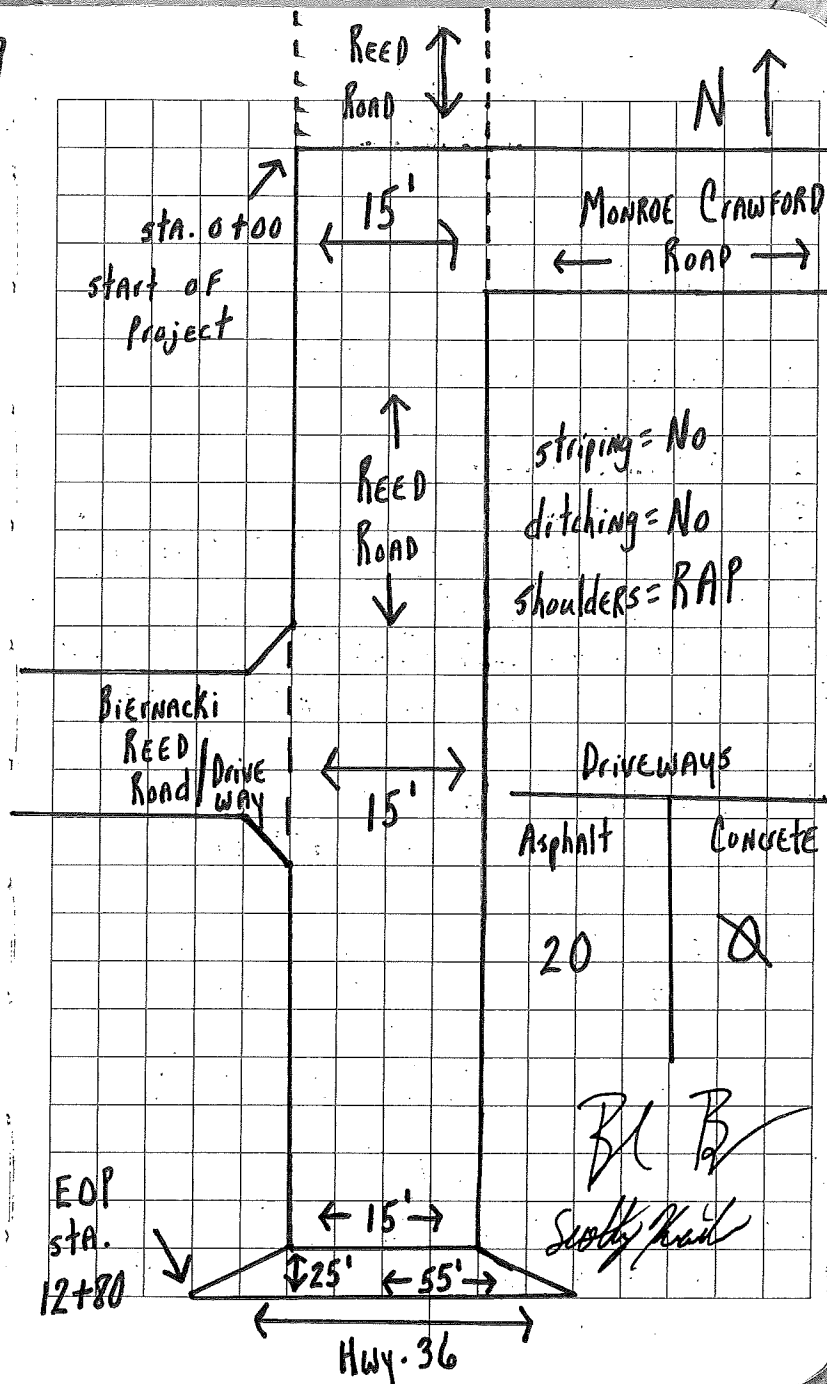 REED
ROAD
N
sta. 0+00
start of
Project
15'
MONROE CRAWFORD
ROAD
REED
ROAD
striping = No
ditching = No
shoulders = RAP
BIERNACKI
REED
Road / Drive
way
15'
DRIVEWAYS
Asphalt
CONCRETE
20
Ø
EOP
sta.
12+80
15'
25'
55'
Hwy. 36